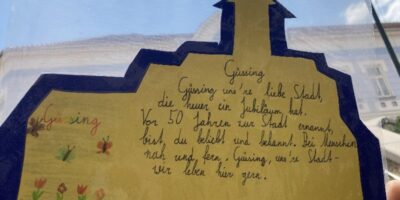 Güssing
Güssing uns're liebe Stadt,
die heuer ein Jubiläum hat.
Vor 50 Jahren zur Stadt ernannt,
bist du beliebt und bekannt. Bei Menschen
nah und fern. Güssing, uns're Stadt-
wir leben hier gern.
Güssing